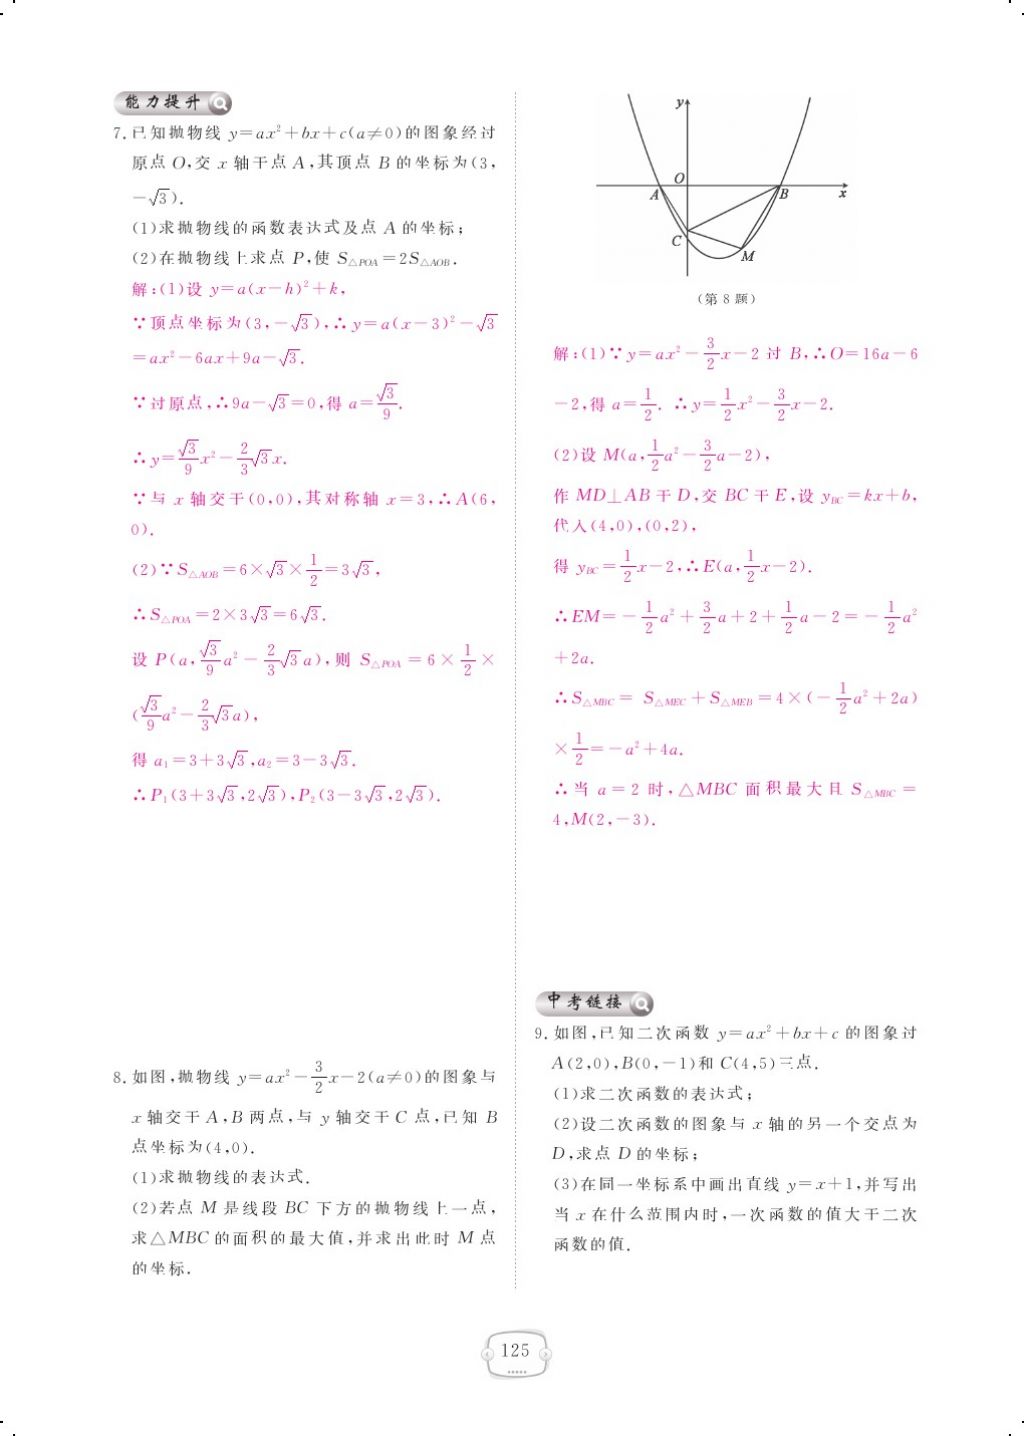 能力提升
7. 已知抛物线 y=ax²+bx+c(a≠0)的图象经过
原点 O,交 x 轴于点 A,其顶点 B 的坐标为(3,
-√3).
(1)求抛物线的函数表达式及点 A 的坐标;
(2)在抛物线上求点 P,使 S△POA=2S△AOB.
解:(1)设 y=a(x-h)²+k,
∵顶点坐标为(3,-√3),∴y=a(x-3)²-√3
=ax²-6ax+9a-√3.
∵过原点,∴9a-√3=0,得 a=√3/9.
∴y=√3/9x²-2/3√3x.
∵与 x 轴交于(0,0),其对称轴 x=3,∴A(6,
0).
(2)∵S△AOB=6×√3×1/2=3√3,
∴S△POA=2×3√3=6√3.
设 P(a,√3/9a²-2/3√3a),则 S△POA=6×1/2×
(√3/9a²-2/3√3a),
得 a₁=3+3√3,a₂=3-3√3.
∴P₁(3+3√3,2√3),P₂(3-3√3,2√3).
8. 如图,抛物线 y=ax²-3/2x-2(a≠0)的图象与
x 轴交于 A,B 两点,与 y 轴交于 C 点,已知 B
点坐标为(4,0).
(1)求抛物线的表达式.
(2)若点 M 是线段 BC 下方的抛物线上一点,
求△MBC 的面积的最大值,并求出此时 M 点
的坐标.
y
O
A
B
x
C
M
(第 8 题)
解:(1)∵y=ax²-3/2x-2 过 B,∴O=16a-6
-2,得 a=1/2. ∴y=1/2x²-3/2x-2.
(2)设 M(a,1/2a²-3/2a-2),
作 MD⊥AB 于 D,交 BC 于 E,设 yBC=kx+b,
代入(4,0),(0,2),
得 yBC=1/2x-2,∴E(a,1/2x-2).
∴EM=-1/2a²+3/2a+2+1/2a-2=-1/2a²
+2a.
∴S△MBC= S△MEC+S△MEB=4×(-1/2a²+2a)
×1/2=-a²+4a.
∴当 a=2 时,△MBC 面积最大且 S△MBC=
4,M(2,-3).
中考链接
9. 如图,已知二次函数 y=ax²+bx+c 的图象过
A(2,0),B(0,-1)和 C(4,5)三点.
(1)求二次函数的表达式;
(2)设二次函数的图象与 x 轴的另一个交点为
D,求点 D 的坐标;
(3)在同一坐标系中画出直线 y=x+1,并写出
当 x 在什么范围内时,一次函数的值大于二次
函数的值.
125